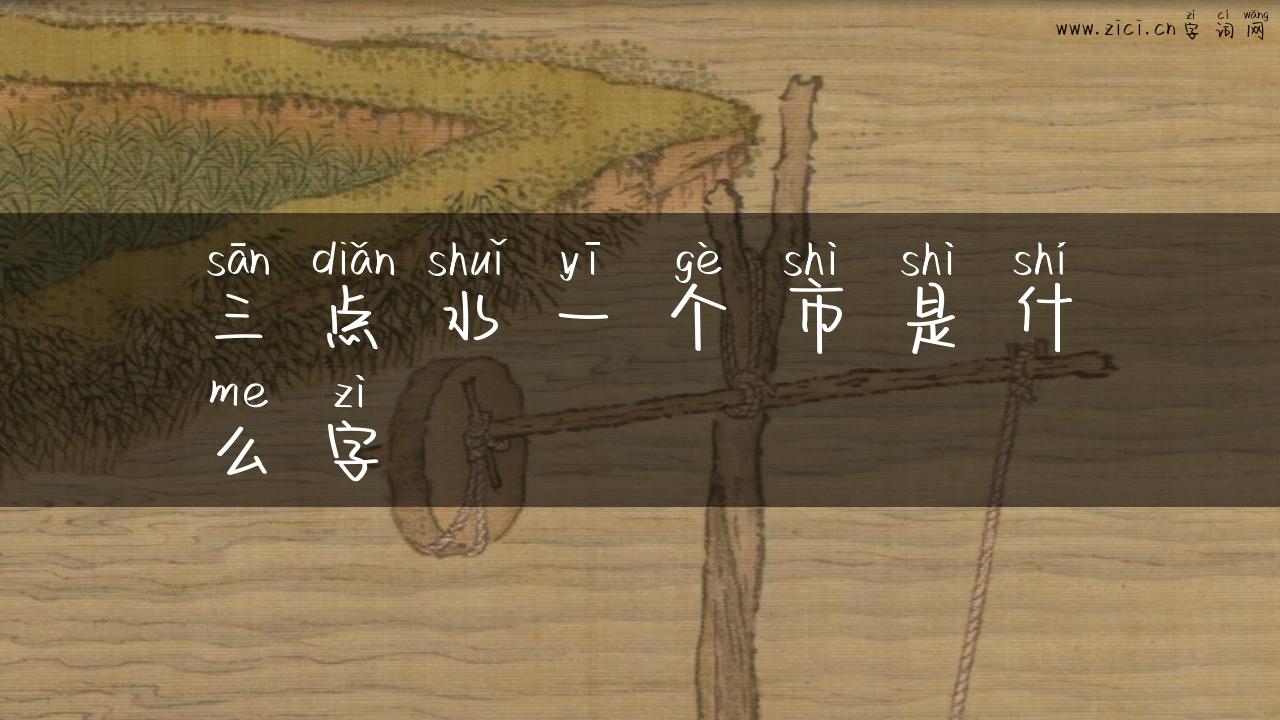 zì cí wǎng
www.zici.cn字词网
sān diǎn shuǐ yī gè shì shì shí
三点水一个市是什
me zì
么字